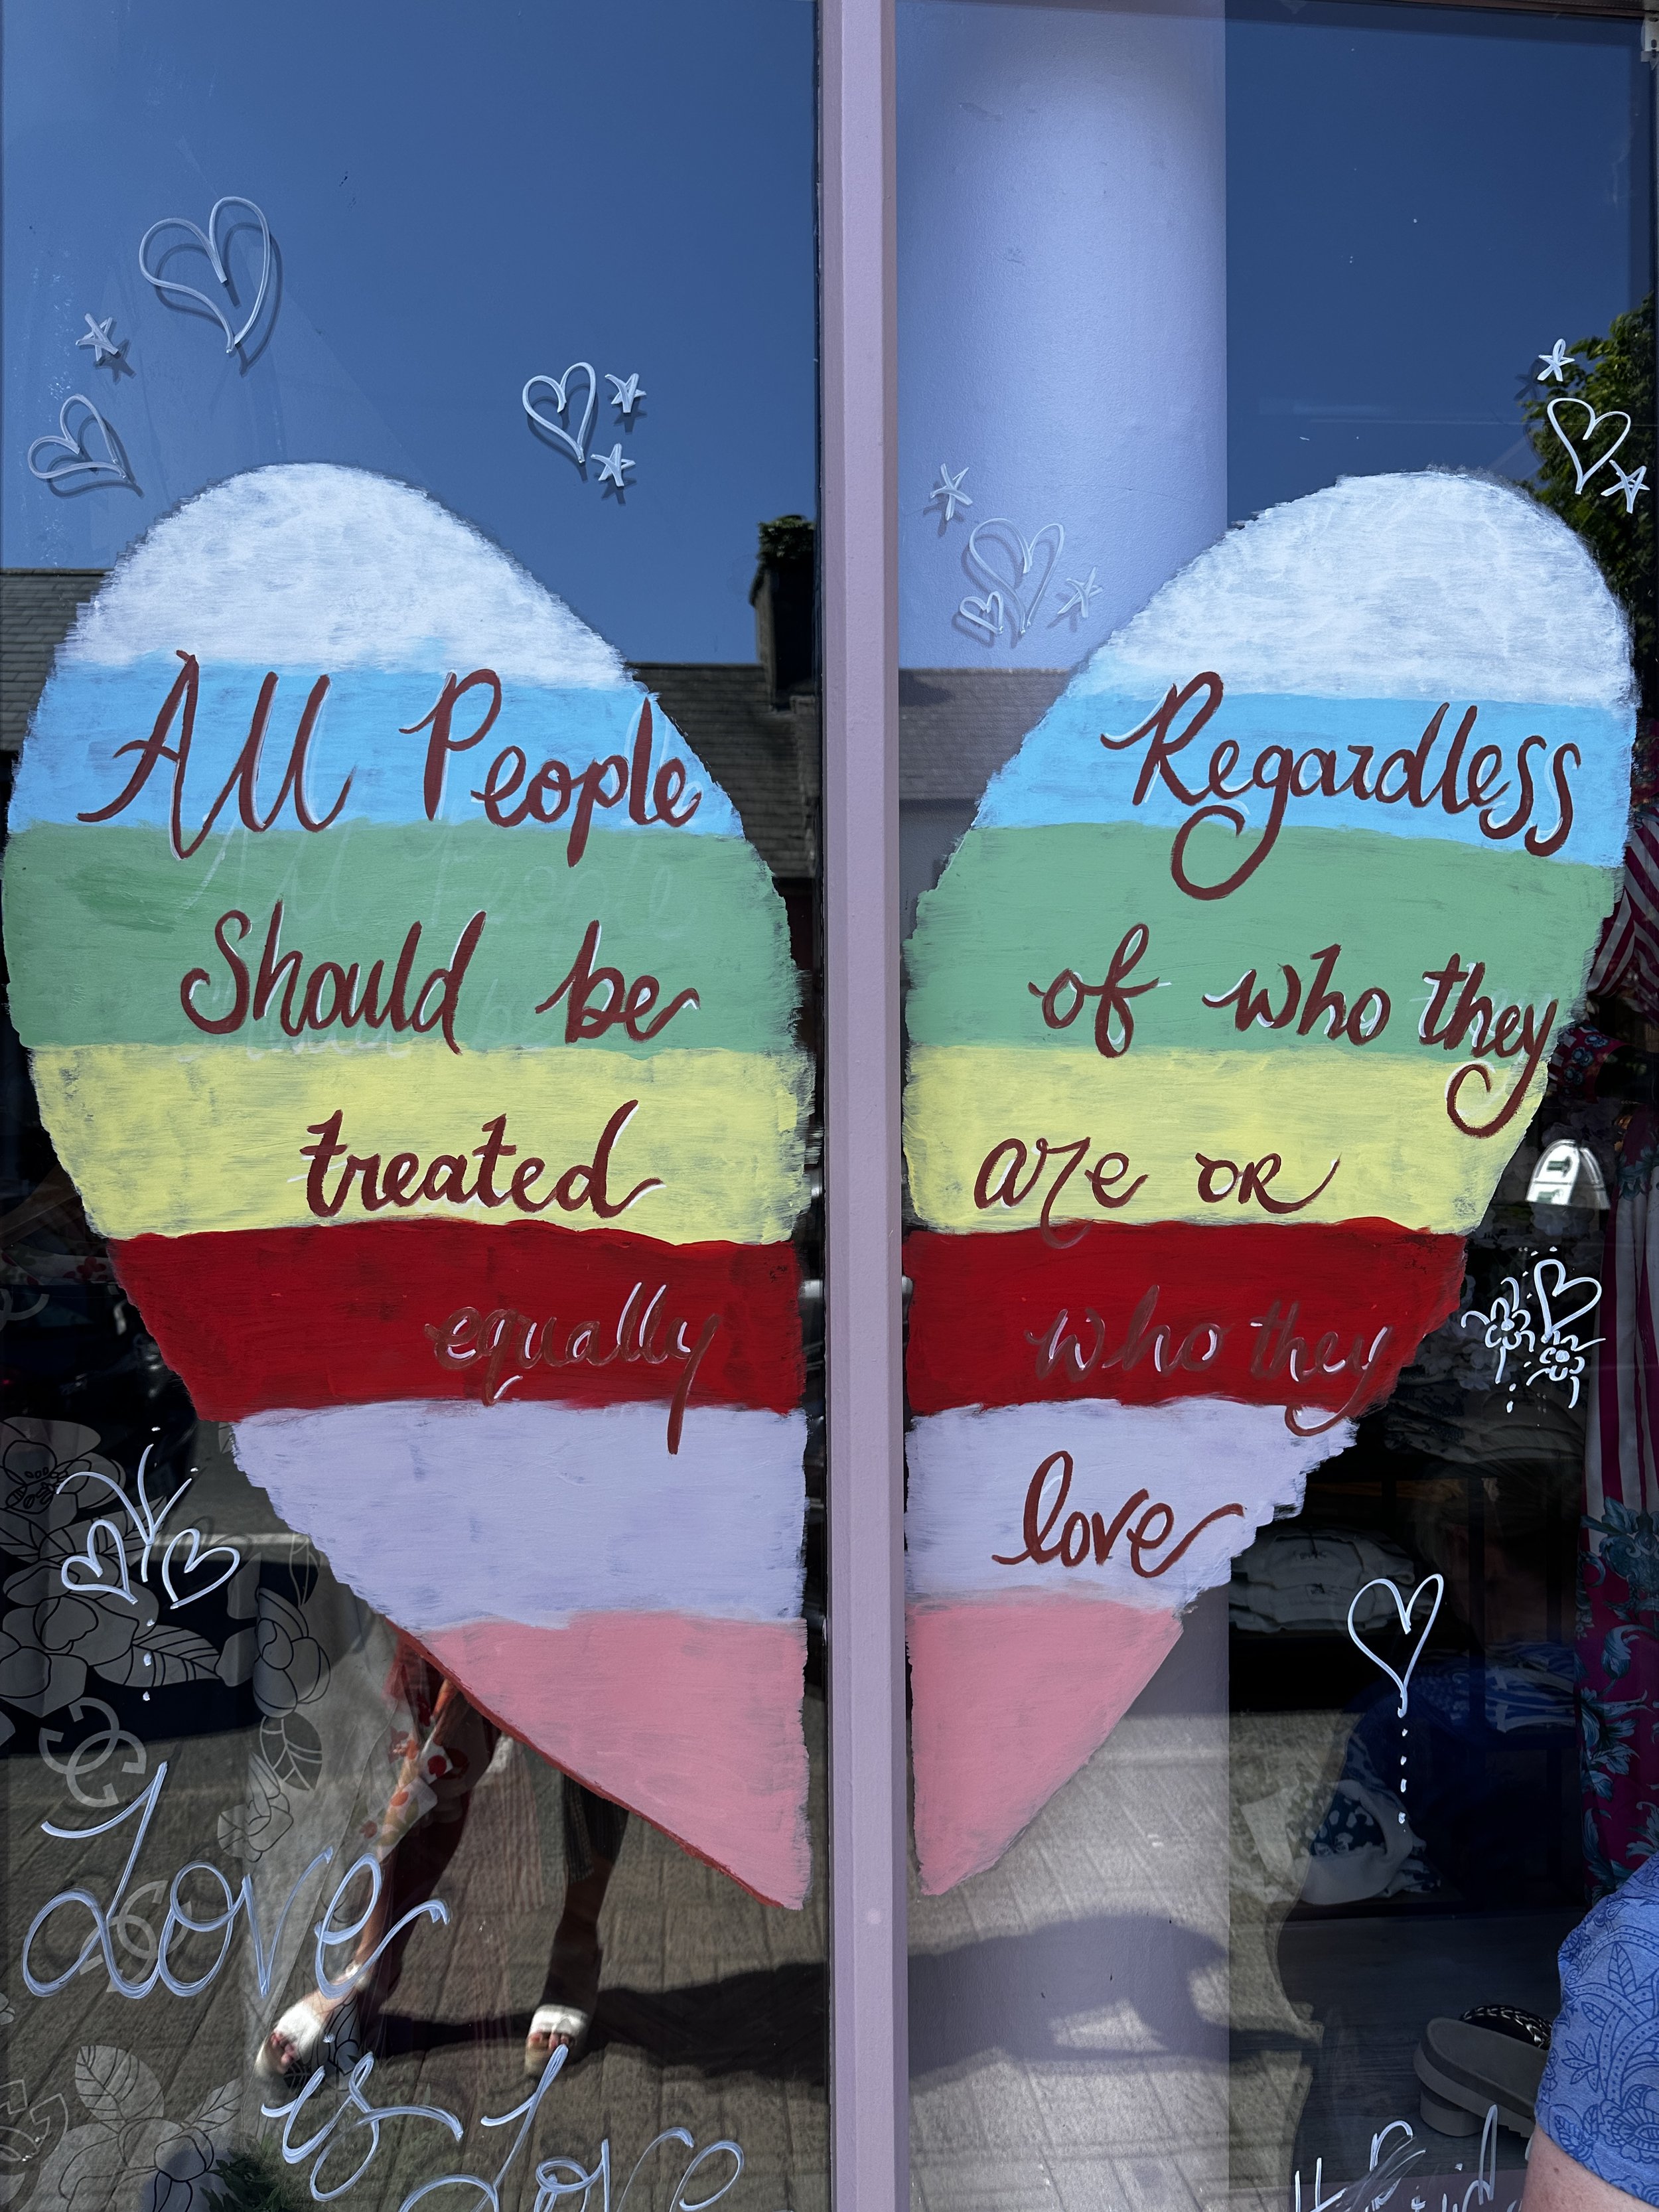 All People
Should be
treated
equally
Regardless
of who they
are or
who they
love
Love
is Love